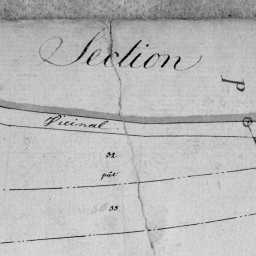 Section
P
Vicinal
32
pie
33